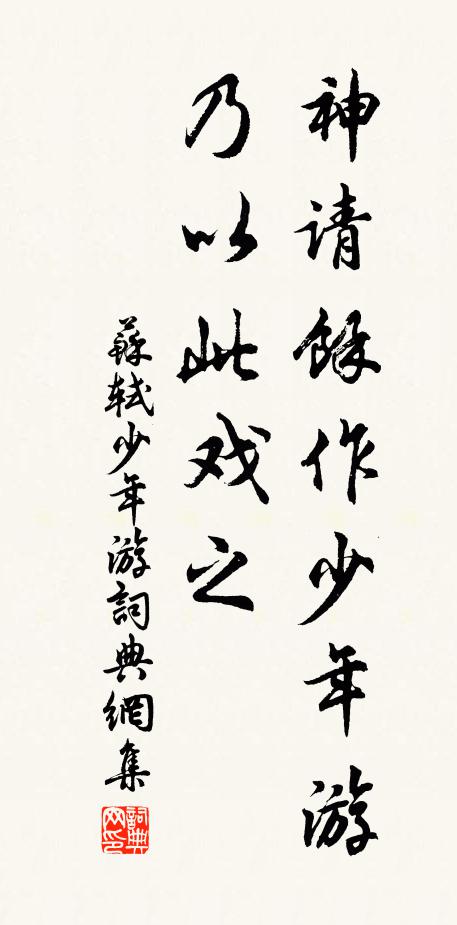 神请馀作少年游
乃以此戏之
蘇轼少年游詞典網集
詞典网印